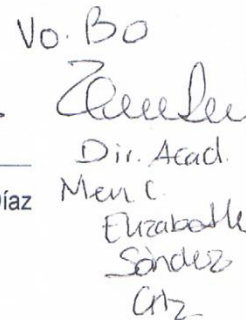 Vo. Bo
Dir. Acad.
Díaz
Men C.
Elizabeth
Sández
Crtz